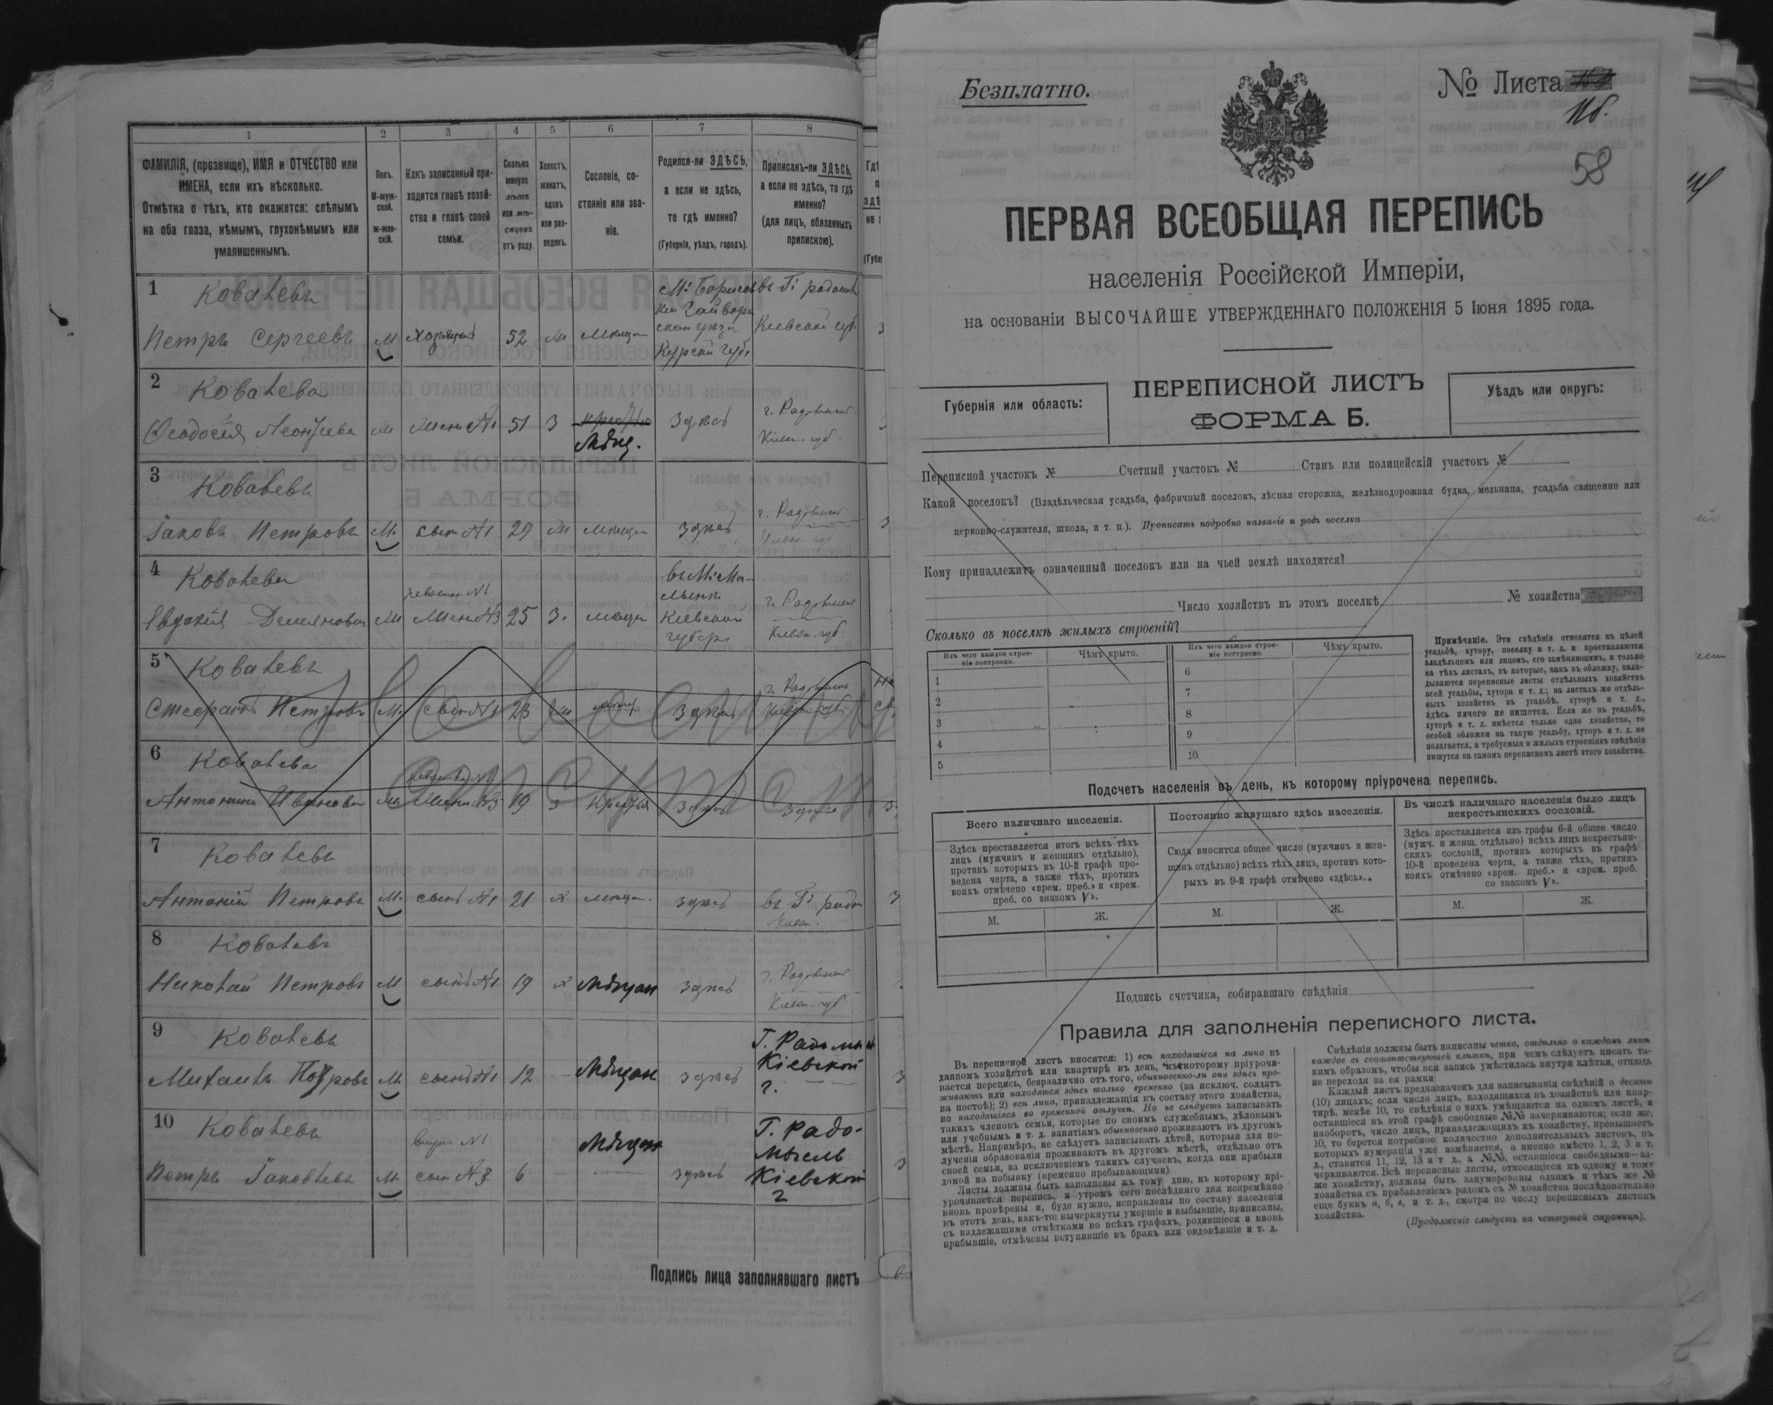 1 2 3 4 5 6 7 8
ФАМИЛІЯ, (прозвище), ИМЯ и ОТЧЕСТВО или
ИМЕНА, если ихъ нѣсколько.
Отмѣтка о тѣхъ, кто окажется: слѣпымъ
на оба глаза, нѣмымъ, глухонѣмымъ или
умалишеннымъ.
Полъ.
М-муж-
ской.
ж-жен-
скій.
Какъ записанный при-
ходится главѣ хозяй-
ства и главѣ своей
семьи.
Сколько
минуло
лѣтъ
или мѣ-
сяцевъ
отъ роду.
Холостъ,
женатъ,
вдовъ
или раз-
веденъ.
Сословіе, со-
стояніе или зва-
ніе.
Родился-ли ЗДѢСЬ,
а если не здѣсь,
то гдѣ именно?
(Губернія, уѣздъ, городъ).
Приписанъ-ли ЗДѢСЬ,
а если не здѣсь, то гдѣ
именно?
(для лицъ, обязанныхъ
припискою).
1 Ковалевъ
Петръ Сергеевъ М 52
Курской губ Кіевской губ.
2 Ковалева
Феодосія Леонтьева 51 З Мѣщ. Здѣсь г. Радомысль
Кіев. губ.
3 Ковалевъ
Іаковъ Петровъ М. сынъ №1 29 здѣсь г. Радомысль
4 Ковалева
Евдокія Демяновна 25 З. Кіевской г. Радомысль
губерн Кіев. губ.
5 Ковалевъ
Стефанъ Петровъ М. сынъ №1 23 Здѣсь г. Радомысль
6 Ковалева
Антонина Иванова 19 З Здѣсь Здѣсь
7 Ковалевъ
Антоній Петровъ М. сынъ №1 21 Х здѣсь
8 Ковалевъ
Николай Петровъ М сынъ №1 19 Х Мѣщан здѣсь г. Радомысль
Кіев. губ
9 Ковалевъ
Михаилъ Петровъ М. сынъ №1 12 Мѣщан здѣсь Г. Радомы
Кіевской
г.
10 Ковалевъ
внукъ №1
Петръ Іаковлевъ М. сынъ №3 6 Мѣщан здѣсь Г. Радо-
мысль
Кіевской
г
Подпись лица заполнявшаго листъ
Безплатно.
№ Листа
11б.
58
ПЕРВАЯ ВСЕОБЩАЯ ПЕРЕПИСЬ
населенія Россійской Имперіи,
на основаніи ВЫСОЧАЙШЕ УТВЕРЖДЕННАГО ПОЛОЖЕНІЯ 5 Іюня 1895 года.
Губернія или область:
ПЕРЕПИСНОЙ ЛИСТЪ
ФОРМА Б.
Уѣздъ или округъ:
Переписной участокъ № Счетный участокъ № Станъ или полицейскій участокъ №
Какой поселокъ? (Владѣльческая усадьба, фабричный поселокъ, лѣсная сторожка, желѣзнодорожная будка, мельница, усадьба священно или
церковно-служителя, школа, и т. п.). Прописать подробно названіе и родъ поселка
Кому принадлежитъ означенный поселокъ или на чьей землѣ находится?
Число хозяйствъ въ этомъ поселкѣ № хозяйства
Сколько въ поселкѣ жилыхъ строеній?
Изъ чего каждое строе-
ніе построено.
Чѣмъ крыто.
Изъ чего каждое строе-
ніе построено.
Чѣмъ крыто.
1 6
2 7
3 8
4 9
5 10
Примѣчаніе. Эти свѣдѣнія относятся къ цѣлой
усадьбѣ, хутору, поселку и т. д. и проставляются
владѣльцемъ или лицомъ, его замѣняющимъ, и только
на тѣхъ листахъ, въ которые, какъ въ обложку, вкла-
дываются переписные листы отдѣльныхъ хозяйствъ
всей усадьбы, хутора и т. д.; на листахъ же отдѣль-
ныхъ хозяйствъ въ усадьбѣ, хуторѣ и т. д.,
здѣсь ничего не пишется. Если же въ усадьбѣ,
хуторѣ и т. д. имѣется только одно хозяйство, то
особой обложки на такую усадьбу, хуторъ и т. д. не
полагается, а требуемыя о жилыхъ строеніяхъ свѣдѣнія
пишутся на самомъ переписномъ листѣ этого хозяйства.
Подсчетъ населенія въ день, къ которому пріурочена перепись.
Всего наличнаго населенія.
Здѣсь проставляется итогъ всѣхъ тѣхъ
лицъ (мужчинъ и женщинъ отдѣльно),
противъ которыхъ въ 10-й графѣ про-
ведена черта, а также тѣхъ, противъ
коихъ отмѣчено «врем. преб.» и «врем.
преб. со знакомъ V».
Постоянно живущаго здѣсь населенія.
Сюда вносится общее число (мужчинъ и жен-
щинъ отдѣльно) всѣхъ тѣхъ лицъ, противъ кото-
рыхъ въ 9-й графѣ отмѣчено «здѣсь».
Въ числѣ наличнаго населенія было лицъ
некрестьянскихъ сословій.
Здѣсь проставляется изъ графы 6-й общее число
(мужч. и женщ. отдѣльно) всѣхъ лицъ некрестьян-
скихъ сословій, противъ которыхъ въ графѣ
10-й проведена черта, а также тѣхъ, противъ
коихъ отмѣчено «врем. преб.» и «врем. преб.
со знакомъ V».
М. Ж. М. Ж. М. Ж.
Подпись счетчика, собиравшаго свѣдѣнія
Правила для заполненія переписного листа.
Въ переписной листъ вносятся: 1) всѣ находящіеся на лицо въ
данномъ хозяйствѣ или квартирѣ въ день, къ которому пріурочи-
вается перепись, безразлично отъ того, обыкновенно-ли они здѣсь про-
живаютъ или находятся здѣсь только временно (за исключ. солдатъ
на постоѣ); 2) всѣ лица, принадлежащія къ составу этого хозяйства,
но находящіяся во временной отлучкѣ. Но не слѣдуетъ записывать
такихъ членовъ семьи, которые по своимъ служебнымъ, дѣловымъ
или учебнымъ и т. д. занятіямъ обыкновенно проживаютъ въ другомъ
мѣстѣ. Напримѣръ, не слѣдуетъ записывать дѣтей, которыя для по-
лученія образованія проживаютъ въ другомъ мѣстѣ, отдѣльно отъ
своей семьи, за исключеніемъ такихъ случаевъ, когда они прибыли
домой на побывку (временно пребывающими).
Листы должны быть заполнены къ тому дню, къ которому прі-
урочивается перепись, и утромъ сего послѣдняго дня непремѣнно
вновь провѣрены и, буде нужно, исправлены по составу населенія
въ этотъ день, какъ-то: вычеркнуты умершіе и выбывшіе, приписаны,
съ надлежащими отмѣтками во всѣхъ графахъ, родившіеся и вновь
прибывшіе, отмѣчены вступившіе въ бракъ или овдовѣвшіе и т. д.
Свѣдѣнія должны быть написаны четко, отдѣльно о каждомъ лицѣ
каждое въ соотвѣтствующей клѣткѣ, при чемъ слѣдуетъ писать та-
кимъ образомъ, чтобы вся запись умѣстилась внутри клѣтки, отнюдь
не переходя за ея рамки.
Каждый листъ предназначенъ для записыванія свѣдѣній о десяти
(10) лицахъ; если число лицъ, находящихся въ хозяйствѣ или квар-
тирѣ, менѣе 10, то свѣдѣнія о нихъ умѣщаются на одномъ листѣ, а
оставшіеся въ этой графѣ свободные №№ зачеркиваются; если же,
наоборотъ, число лицъ, принадлежащихъ къ хозяйству, превышаетъ
10, то берется потребное количество дополнительныхъ листовъ, въ
которыхъ нумерація уже измѣняется, а именно вмѣсто 1, 2, 3 и т.
д., ставится 11, 12, 13 и т. д., а №№, оставшіеся свободными—за-
черкиваются. Всѣ переписные листы, относящіеся къ одному и тому
же хозяйству, должны быть занумерованы однимъ и тѣмъ же №
хозяйства съ прибавленіемъ рядомъ съ № хозяйства послѣдовательно
еще буквъ а, б, в, и т. д., смотря по числу переписныхъ листовъ
хозяйства.
(Продолженіе слѣдуетъ на четвертой страницѣ).